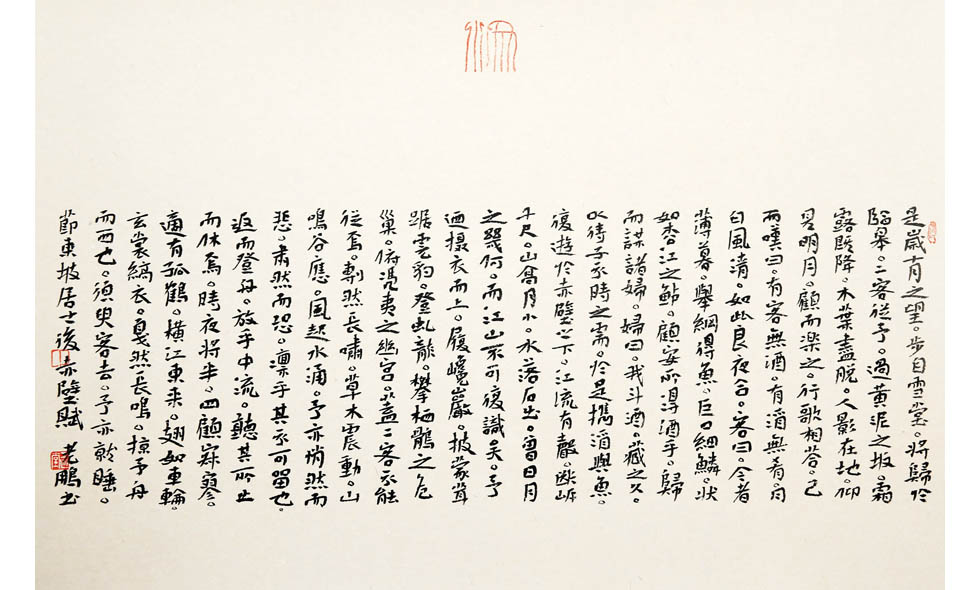 是歲十月之望。步自雪堂。將歸於
臨皋。二客從予。過黃泥之坂。霜
露既降。木葉盡脫。人影在地。仰
見明月。顧而樂之。行歌相答。已
而嘆曰。有客無酒。有酒無肴。月
白風清。如此良夜何。客曰。今者
薄暮。舉網得魚。巨口細鱗。狀
如松江之鱸。顧安所得酒乎。歸
而謀諸婦。婦曰。我斗酒。藏之久。
以待子不時之需。於是攜酒與魚。
復遊於赤壁之下。江流有聲。斷岸
千尺。山高月小。水落石出。曾日月
之幾何。而江山不可復識矣。予
迺攝衣而上。履巉巖。披蒙茸
踞虎豹。登虯龍。攀栖鶻之危
巢。俯馮夷之幽宮。蓋二客不能
從焉。劃然長嘯。草木震動。山
鳴谷應。風起水涌。予亦悄然而
悲。肅然而恐。凛乎其不可留也。
返而登舟。放乎中流。聽其所止
而休焉。時夜將半。四顧寂寥。
適有孤鶴。橫江東來。翅如車輪。
玄裳縞衣。戛然長鳴。掠予舟
而西也。須臾客去。予亦就睡。
節東坡居士後赤壁賦 老鵬書